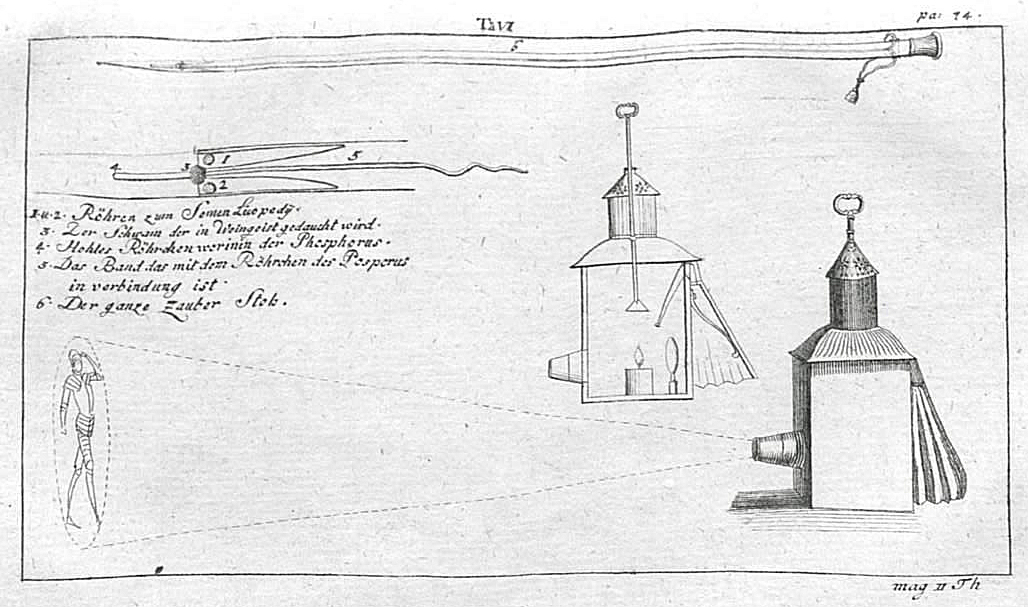 Tab VI
pa: 74.
6
1
2
3
4
5
1 u. 2. Röhren zum Semen Lycopody.
3. Der Schwam der in Weingeist gedaucht wird.
4. Hohles Röhrchen worinin der Phosphorus.
5. Das Band das mit dem Röhrchen des Posporus
in verbindung ist
6. Der ganze Zauber Stok.
mag II Th